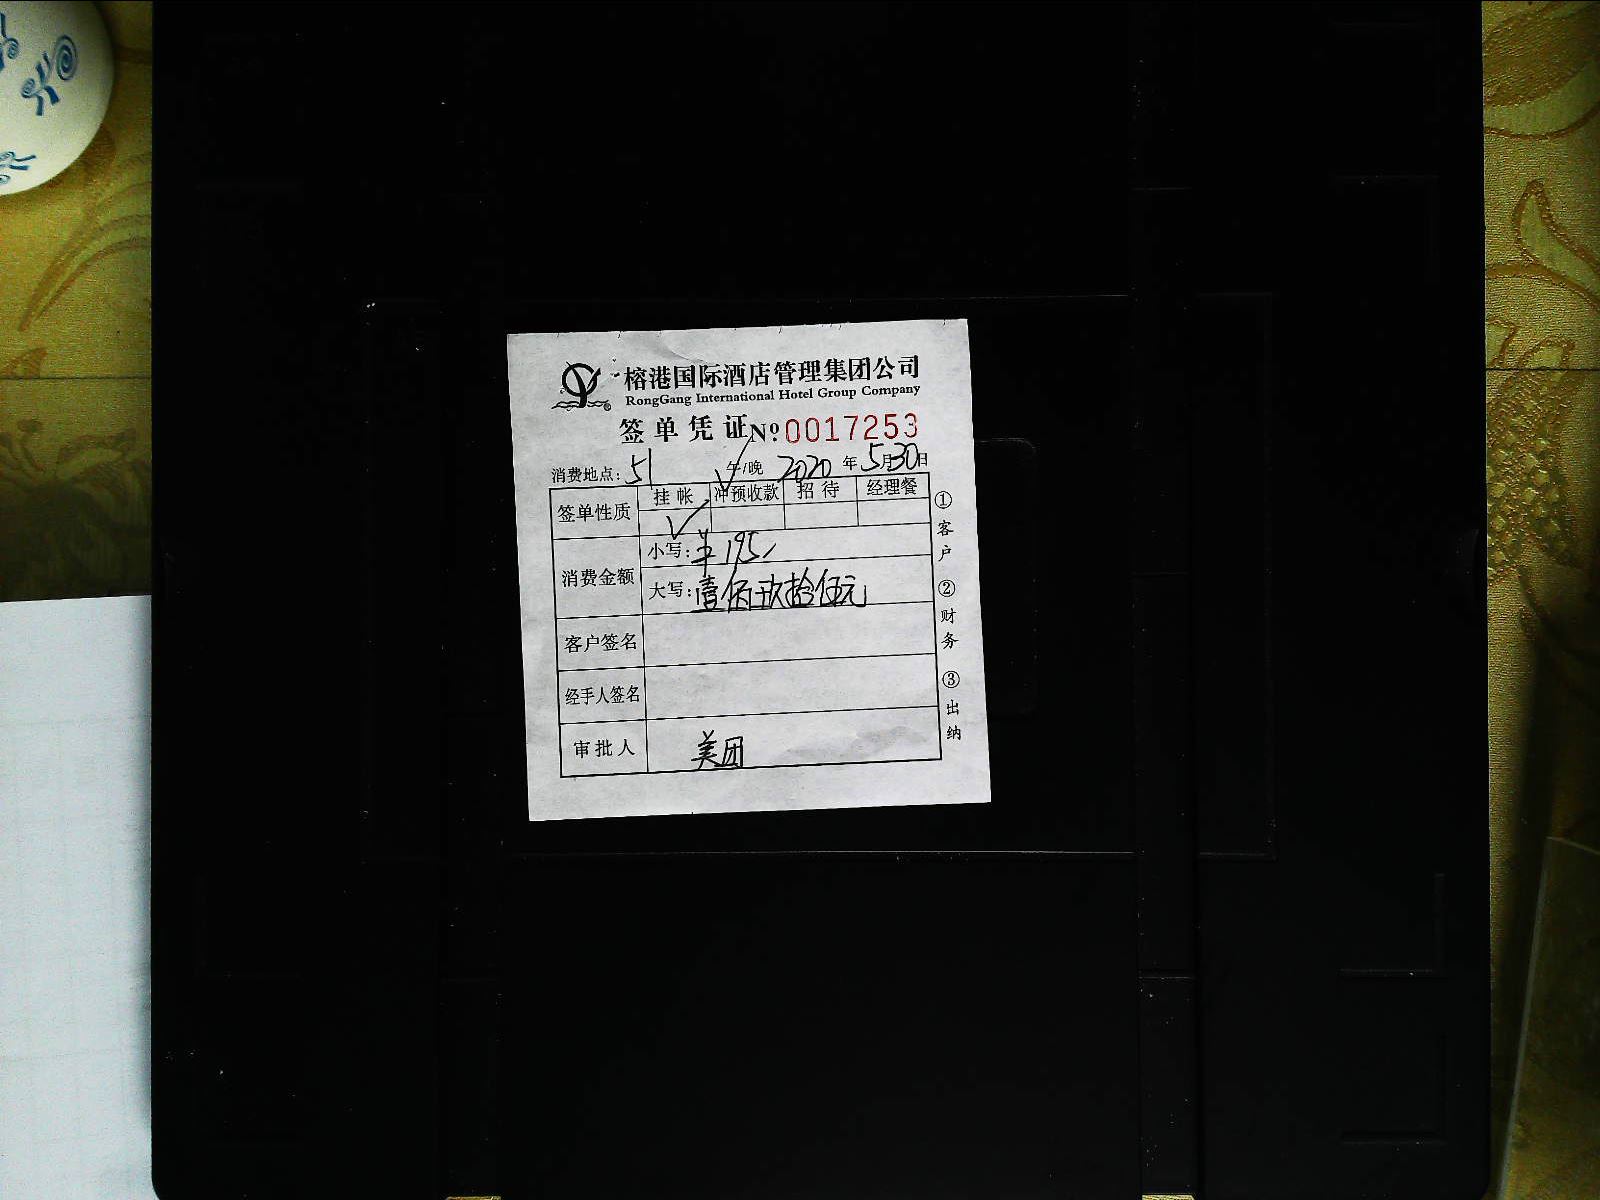 榕港国际酒店管理集团公司
RongGang International Hotel Group Company
签单凭证 №0017253
消费地点: 51 午/晚 2020年5月30日
签单性质 挂帐 冲预收款 招待 经理餐
✓
消费金额
小写: ¥195
大写: 壹佰玖拾伍元
客户签名
经手人签名
审批人 美团
①客户 ②财务 ③出纳